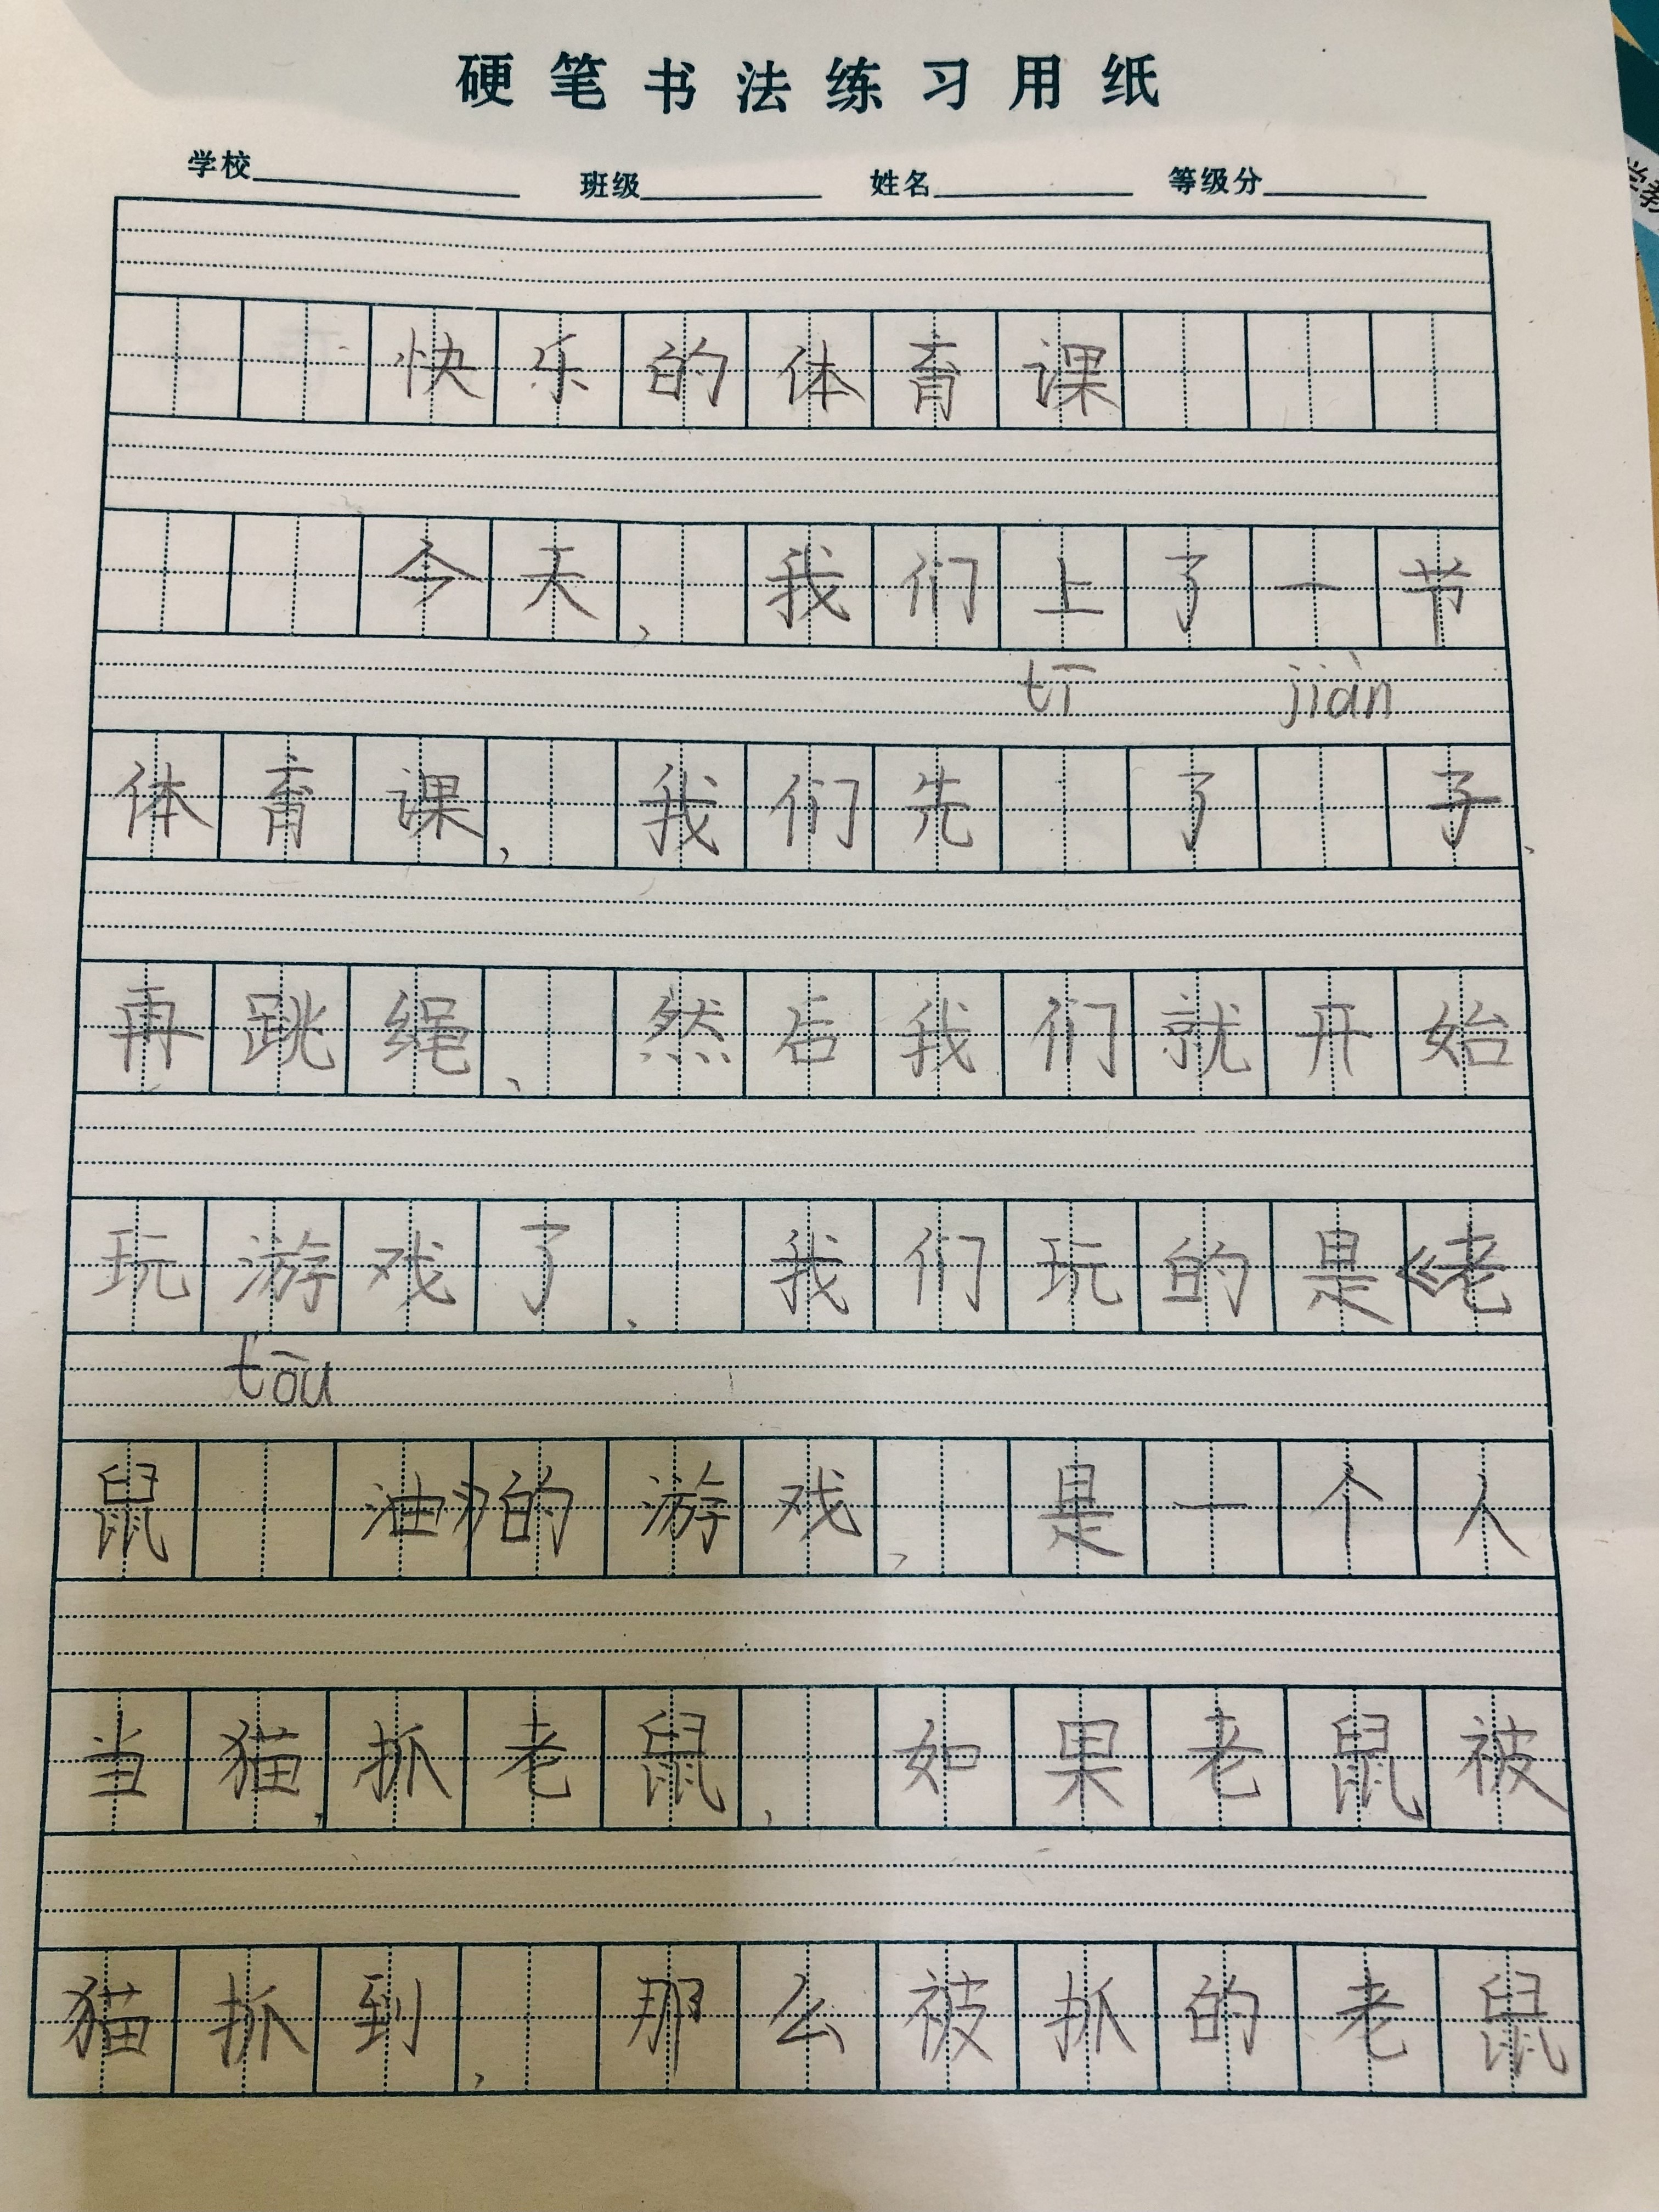 硬笔书法练习用纸
学校 班级 姓名 等级分
快乐的体育课
今天，我们上了一节
tī jiàn
体育课，我们先 了 子、
再跳绳、然后我们就开始
玩游戏了、我们玩的是《老
tōu
鼠 油》的游戏，是一个人
当猫，抓老鼠，如果老鼠被
猫抓到，那么被抓的老鼠